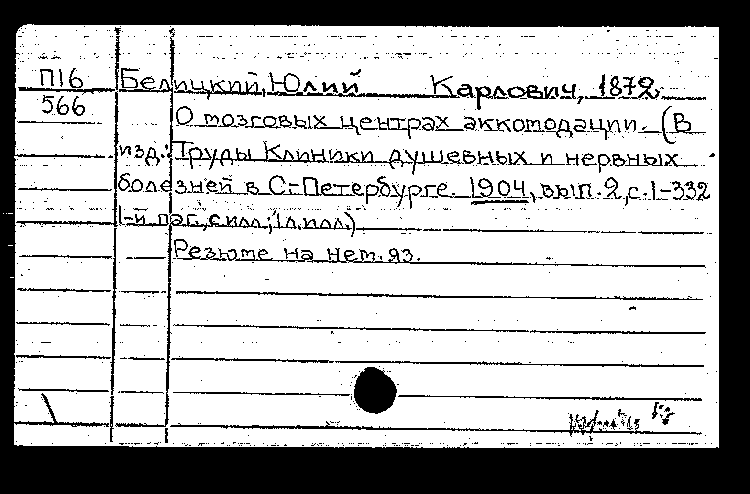 П16 Белицкий, Юлий Карлович, 1872.
566
О мозговых центрах аккомодации. (В
изд.: Труды Клиники душевных и нервных
болезней в С-Петербурге. 1904, вып. 2, с. 1-332
1-й паг., с илл.; 1 л. илл.)
Резюме на нем. яз.